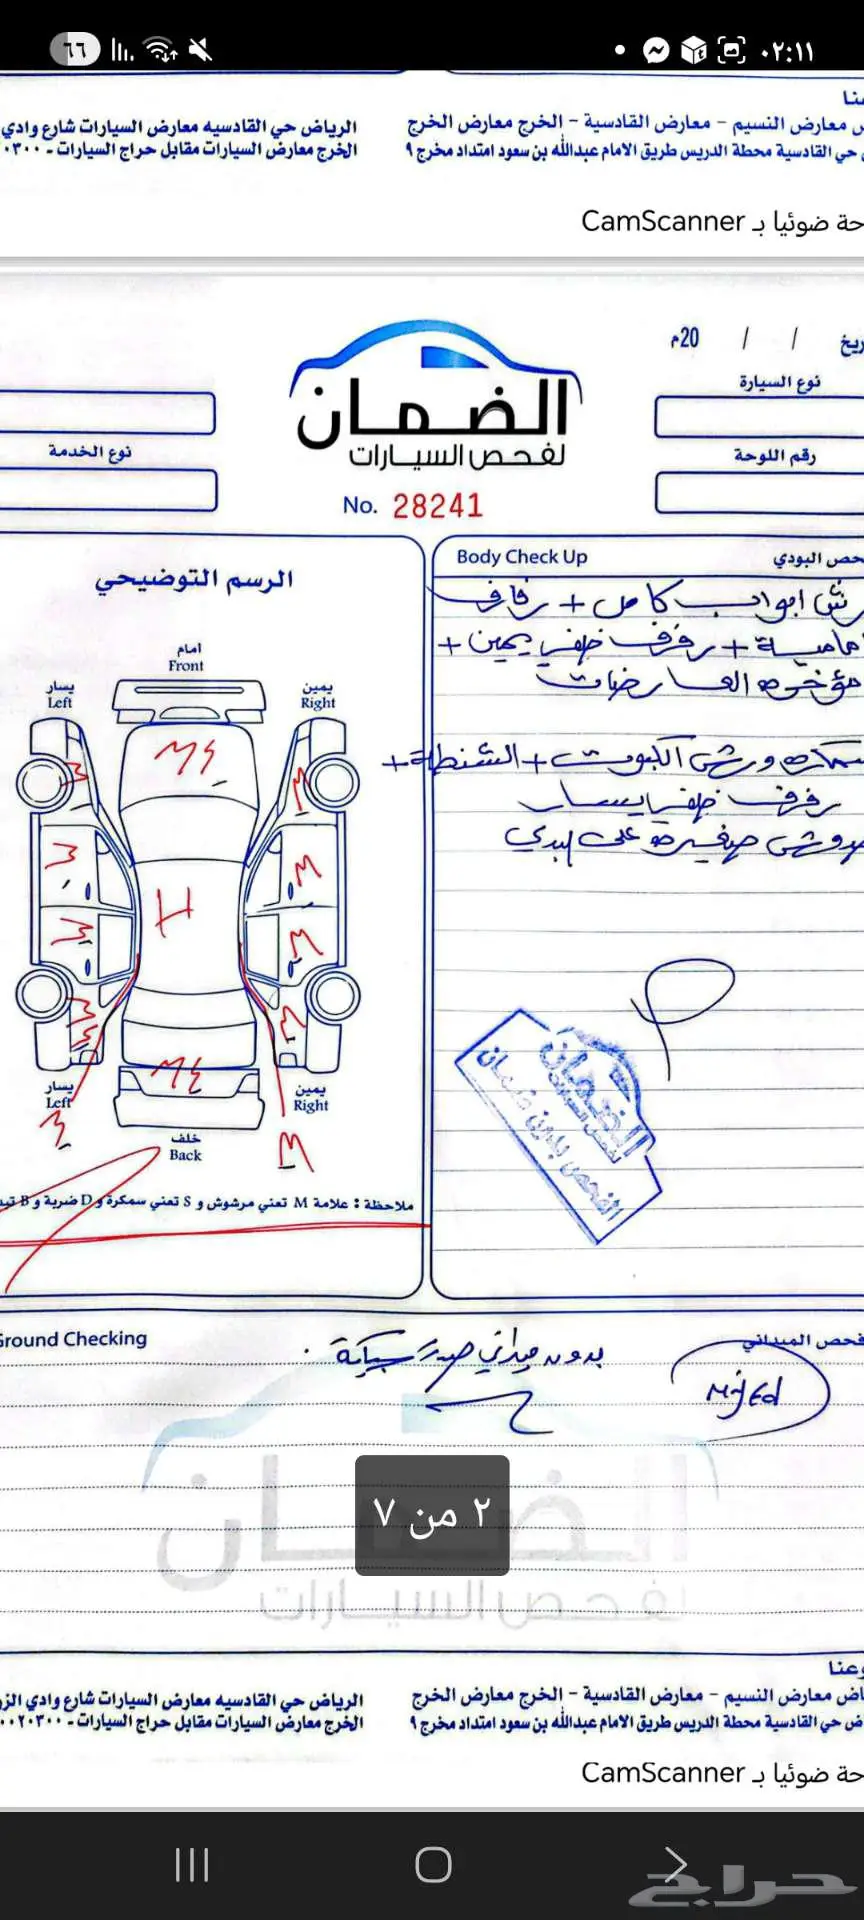 ٦٦
٠٢:١١
عنا
معارض النسيم - معارض القادسية - الخرج معارض الخرج
حي القادسية محطة الدريس طريق الامام عبدالله بن سعود امتداد مخرج ٩
الرياض حي القادسيه معارض السيارات شارع وادي
الخرج معارض السيارات مقابل حراج السيارات - ٠٣٠٠
حة ضوئيا بـ CamScanner
ريخ / / 20م
نوع السيارة
رقم اللوحة
نوع الخدمة
الضمان
لفحص السيارات
No. 28241
حص البودي Body Check Up
رش ابواب كامل + رفارف
امامية + رفرف خلفي يمين +
مؤخرة العارضات
سمكره ورش الكبوت + الشنطة +
رفرف خلفي يسار
خدوش صغيرة على البدي
الضمان
لفحص السيارات
الفحص بدون ضمان
الرسم التوضيحي
امام
Front
يسار
Left
يمين
Right
MS
M
M
M
M
M
M
M
H
M
M
M
MS
M
M
يسار
Left
يمين
Right
خلف
Back
ملاحظة : علامة M تعني مرشوش و S تعني سمكرة و D ضربة و B
فحص الميداني
Ground Checking
بدون ميداني
Mjed
٢ من ٧
الضمان
لفحص السيارات
وعنا
معارض النسيم - معارض القادسية - الخرج معارض الخرج
حي القادسية محطة الدريس طريق الامام عبدالله بن سعود امتداد مخرج ٩
الرياض حي القادسيه معارض السيارات شارع وادي الز
الخرج معارض السيارات مقابل حراج السيارات - ٠٠٢٠٣٠٠
حة ضوئيا بـ CamScanner
حراج